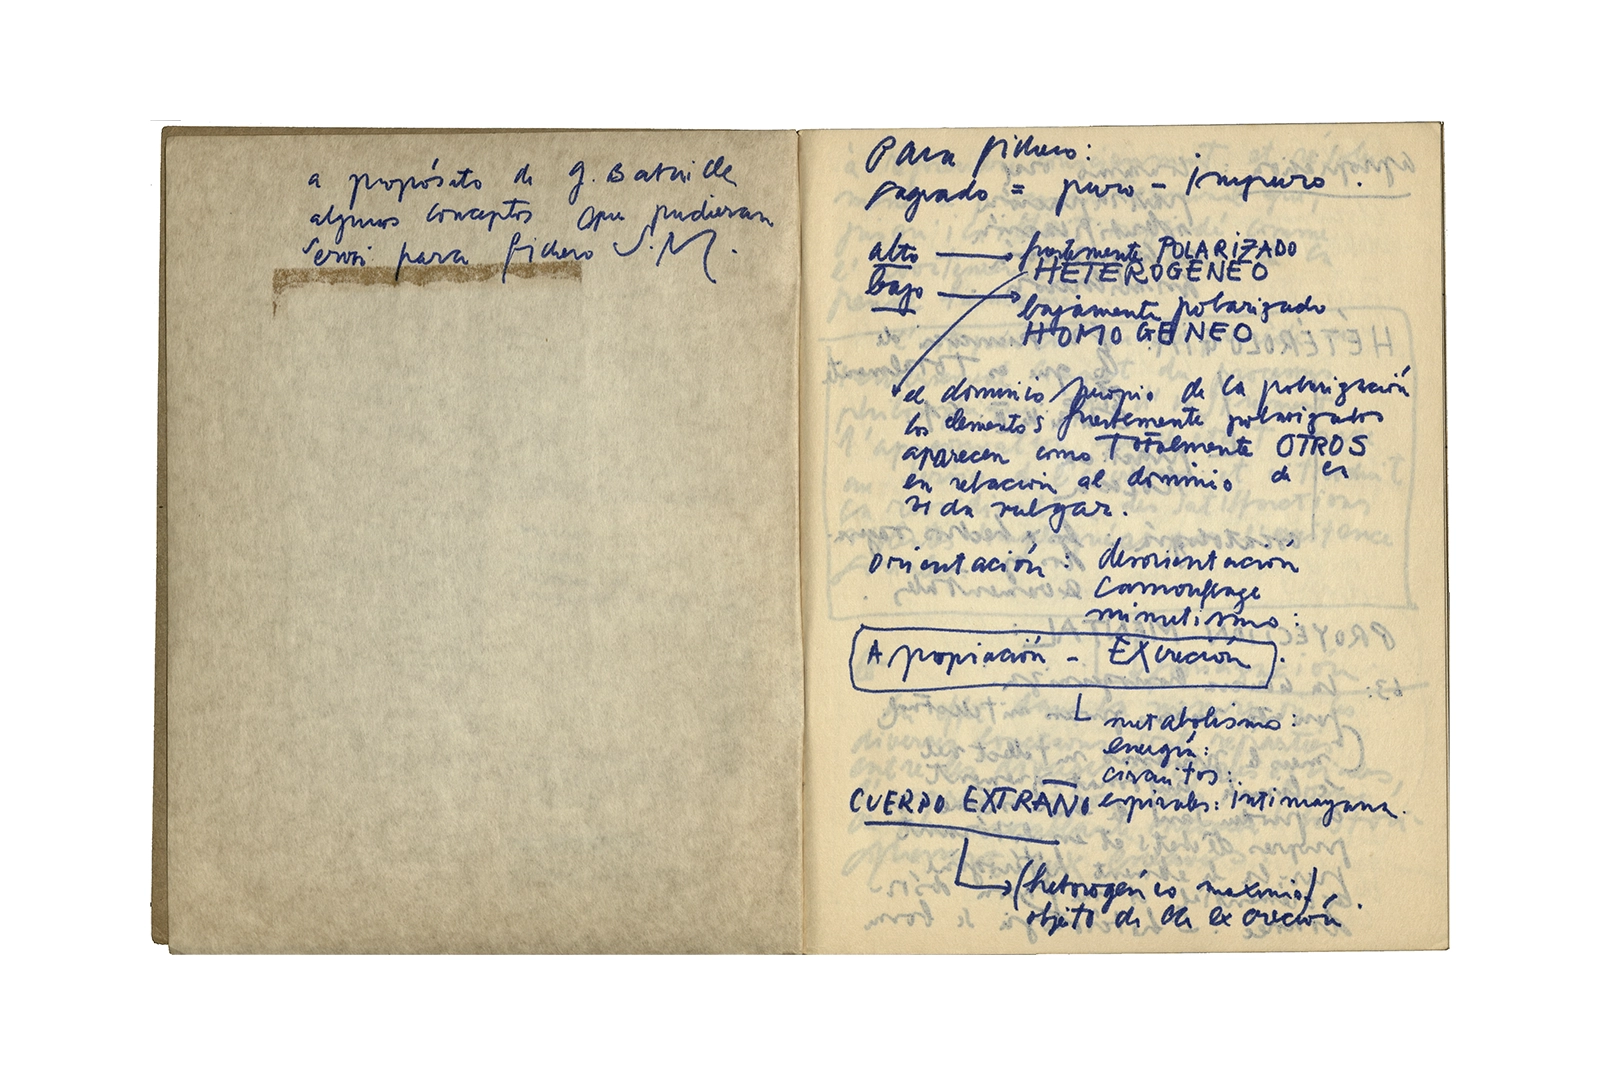 a propósito de G. Bataille
algunos conceptos que pudieran
servir para fichero S.M.
Para fichero:
sagrado = puro - impuro.
alto → fuertemente POLARIZADO
HETEROGENEO
bajo → bajamente polarizado
HOMOGENEO
el dominio propio de la polarización
los elementos fuertemente polarizados
aparecen como Totalmente OTROS
en relación al dominio de la
vida vulgar.
orientación: desorientación
camouflage
mimetismo:
Apropiación - EXcreción.
metabolismo:
energía:
circuitos:
CUERPO EXTRAÑO espirales: intimayana.
(heterogéneo maximo)
objeto de la excreción.